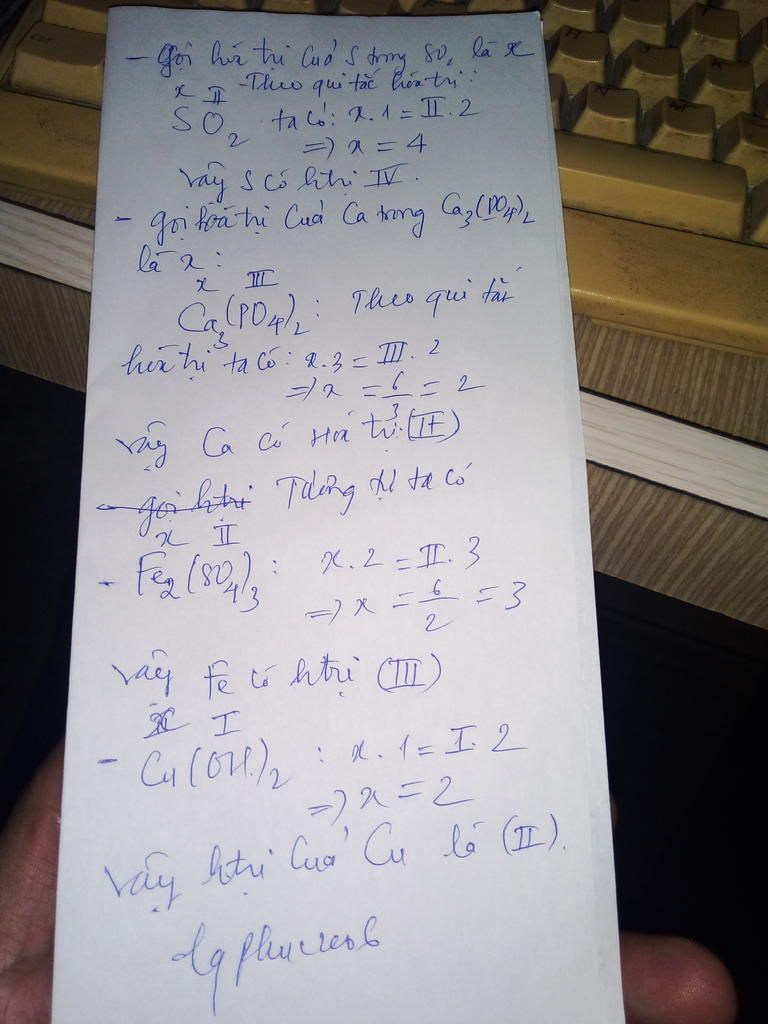 - Gọi hóa trị Của S trong SO2 là x
x II - Theo qui tắc hóa trị:
SO2 ta có: x.1 = II.2
=> x = 4
Vậy S có htrị IV.
- gọi hoá trị Của Ca trong Ca3(PO4)2
là x:
x III
Ca3(PO4)2: Theo qui tắc
hóa trị ta có: x.3 = III.2
=> x = 6/3 = 2
Vậy Ca có Hoá trị: (II)
- gọi htrị Tương tự ta có
x II
- Fe2(SO4)3: x.2 = II.3
=> x = 6/2 = 3
Vậy Fe có htrị (III)
x I
- Cu(OH)2: x.1 = I.2
=> x = 2
Vậy htrị Của Cu là (II).